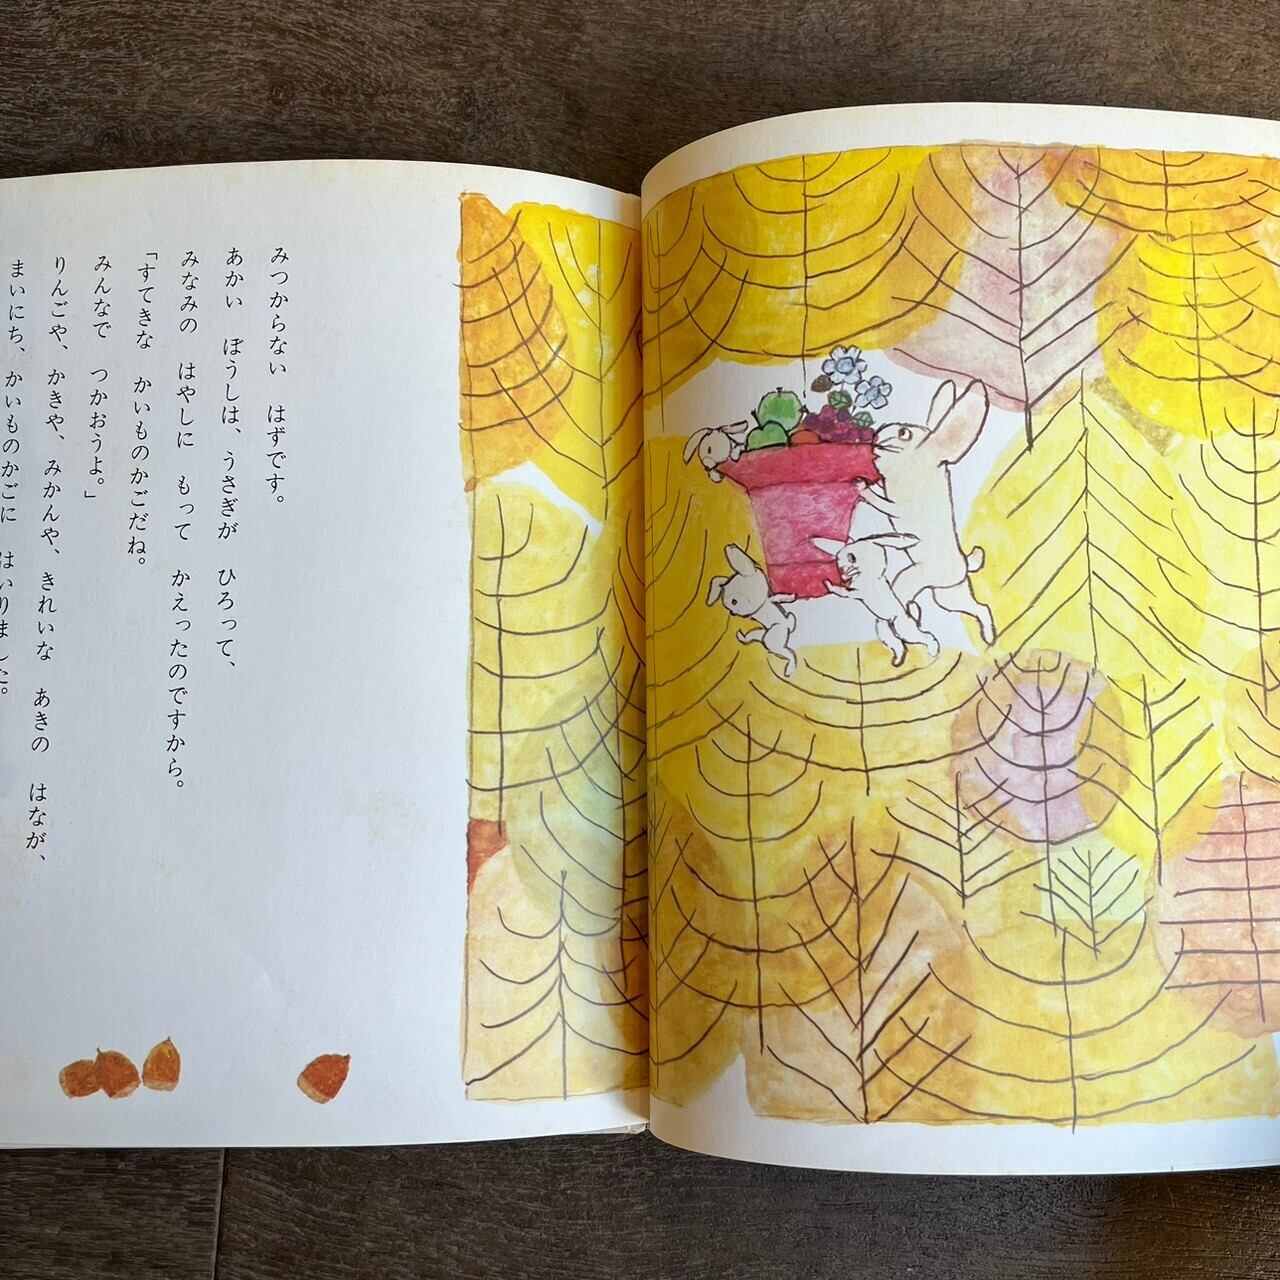 みつからない　はずです。
あかい　ぼうしは、うさぎが　ひろって、
みなみの　はやしに　もって　かえったのですから。
「すてきな　かいものかごだね。
みんなで　つかおうよ。」
りんごや、かきや、みかんや、きれいな　あきの　はなが、
まいにち、かいものかごに　はいりました。